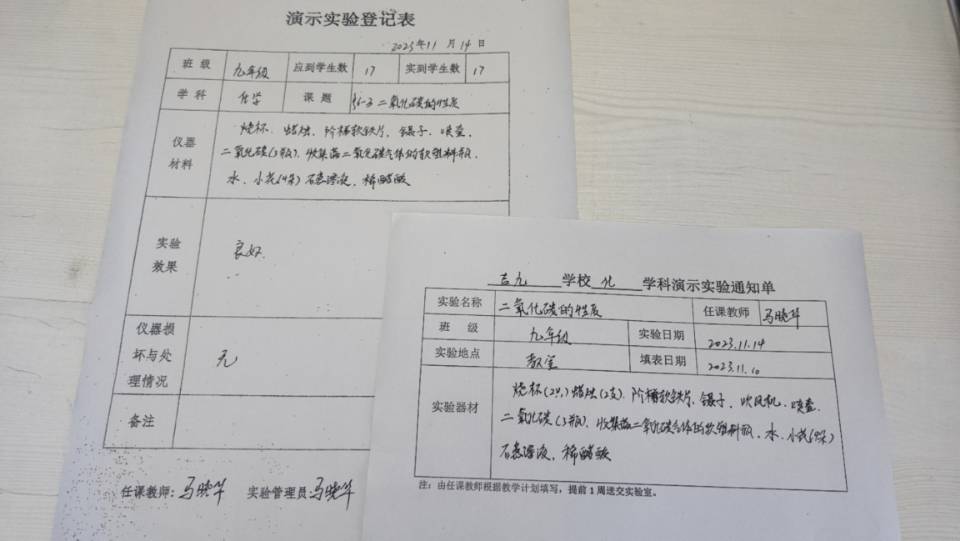 演示实验登记表
2023年11月14日
班级 九年级 应到学生数 17 实到学生数 17
学科 化学 课题 二氧化碳的性质
仪器材料
烧杯、蜡烛、阶梯软铁片、镊子、喷壶、
二氧化碳(3瓶)、收集满二氧化碳气体的软塑料瓶、
水、小花(4朵)石蕊溶液、稀醋酸
实验效果 良好
仪器损坏与处理情况 无
备注
任课教师：马晓华 实验管理员：马晓华
吉九 学校 化 学科演示实验通知单
实验名称 二氧化碳的性质 任课教师 马晓华
班级 九年级 实验日期 2023.11.14
实验地点 教室 填表日期 2023.11.10
实验器材
烧杯(2只)蜡烛(2支)、阶梯软铁片、镊子、吹风机、喷壶、
二氧化碳(3瓶)、收集满二氧化碳气体的软塑料瓶、水、小花(4朵)
石蕊溶液、稀醋酸
注：由任课教师根据教学计划填写，提前1周送交实验室。